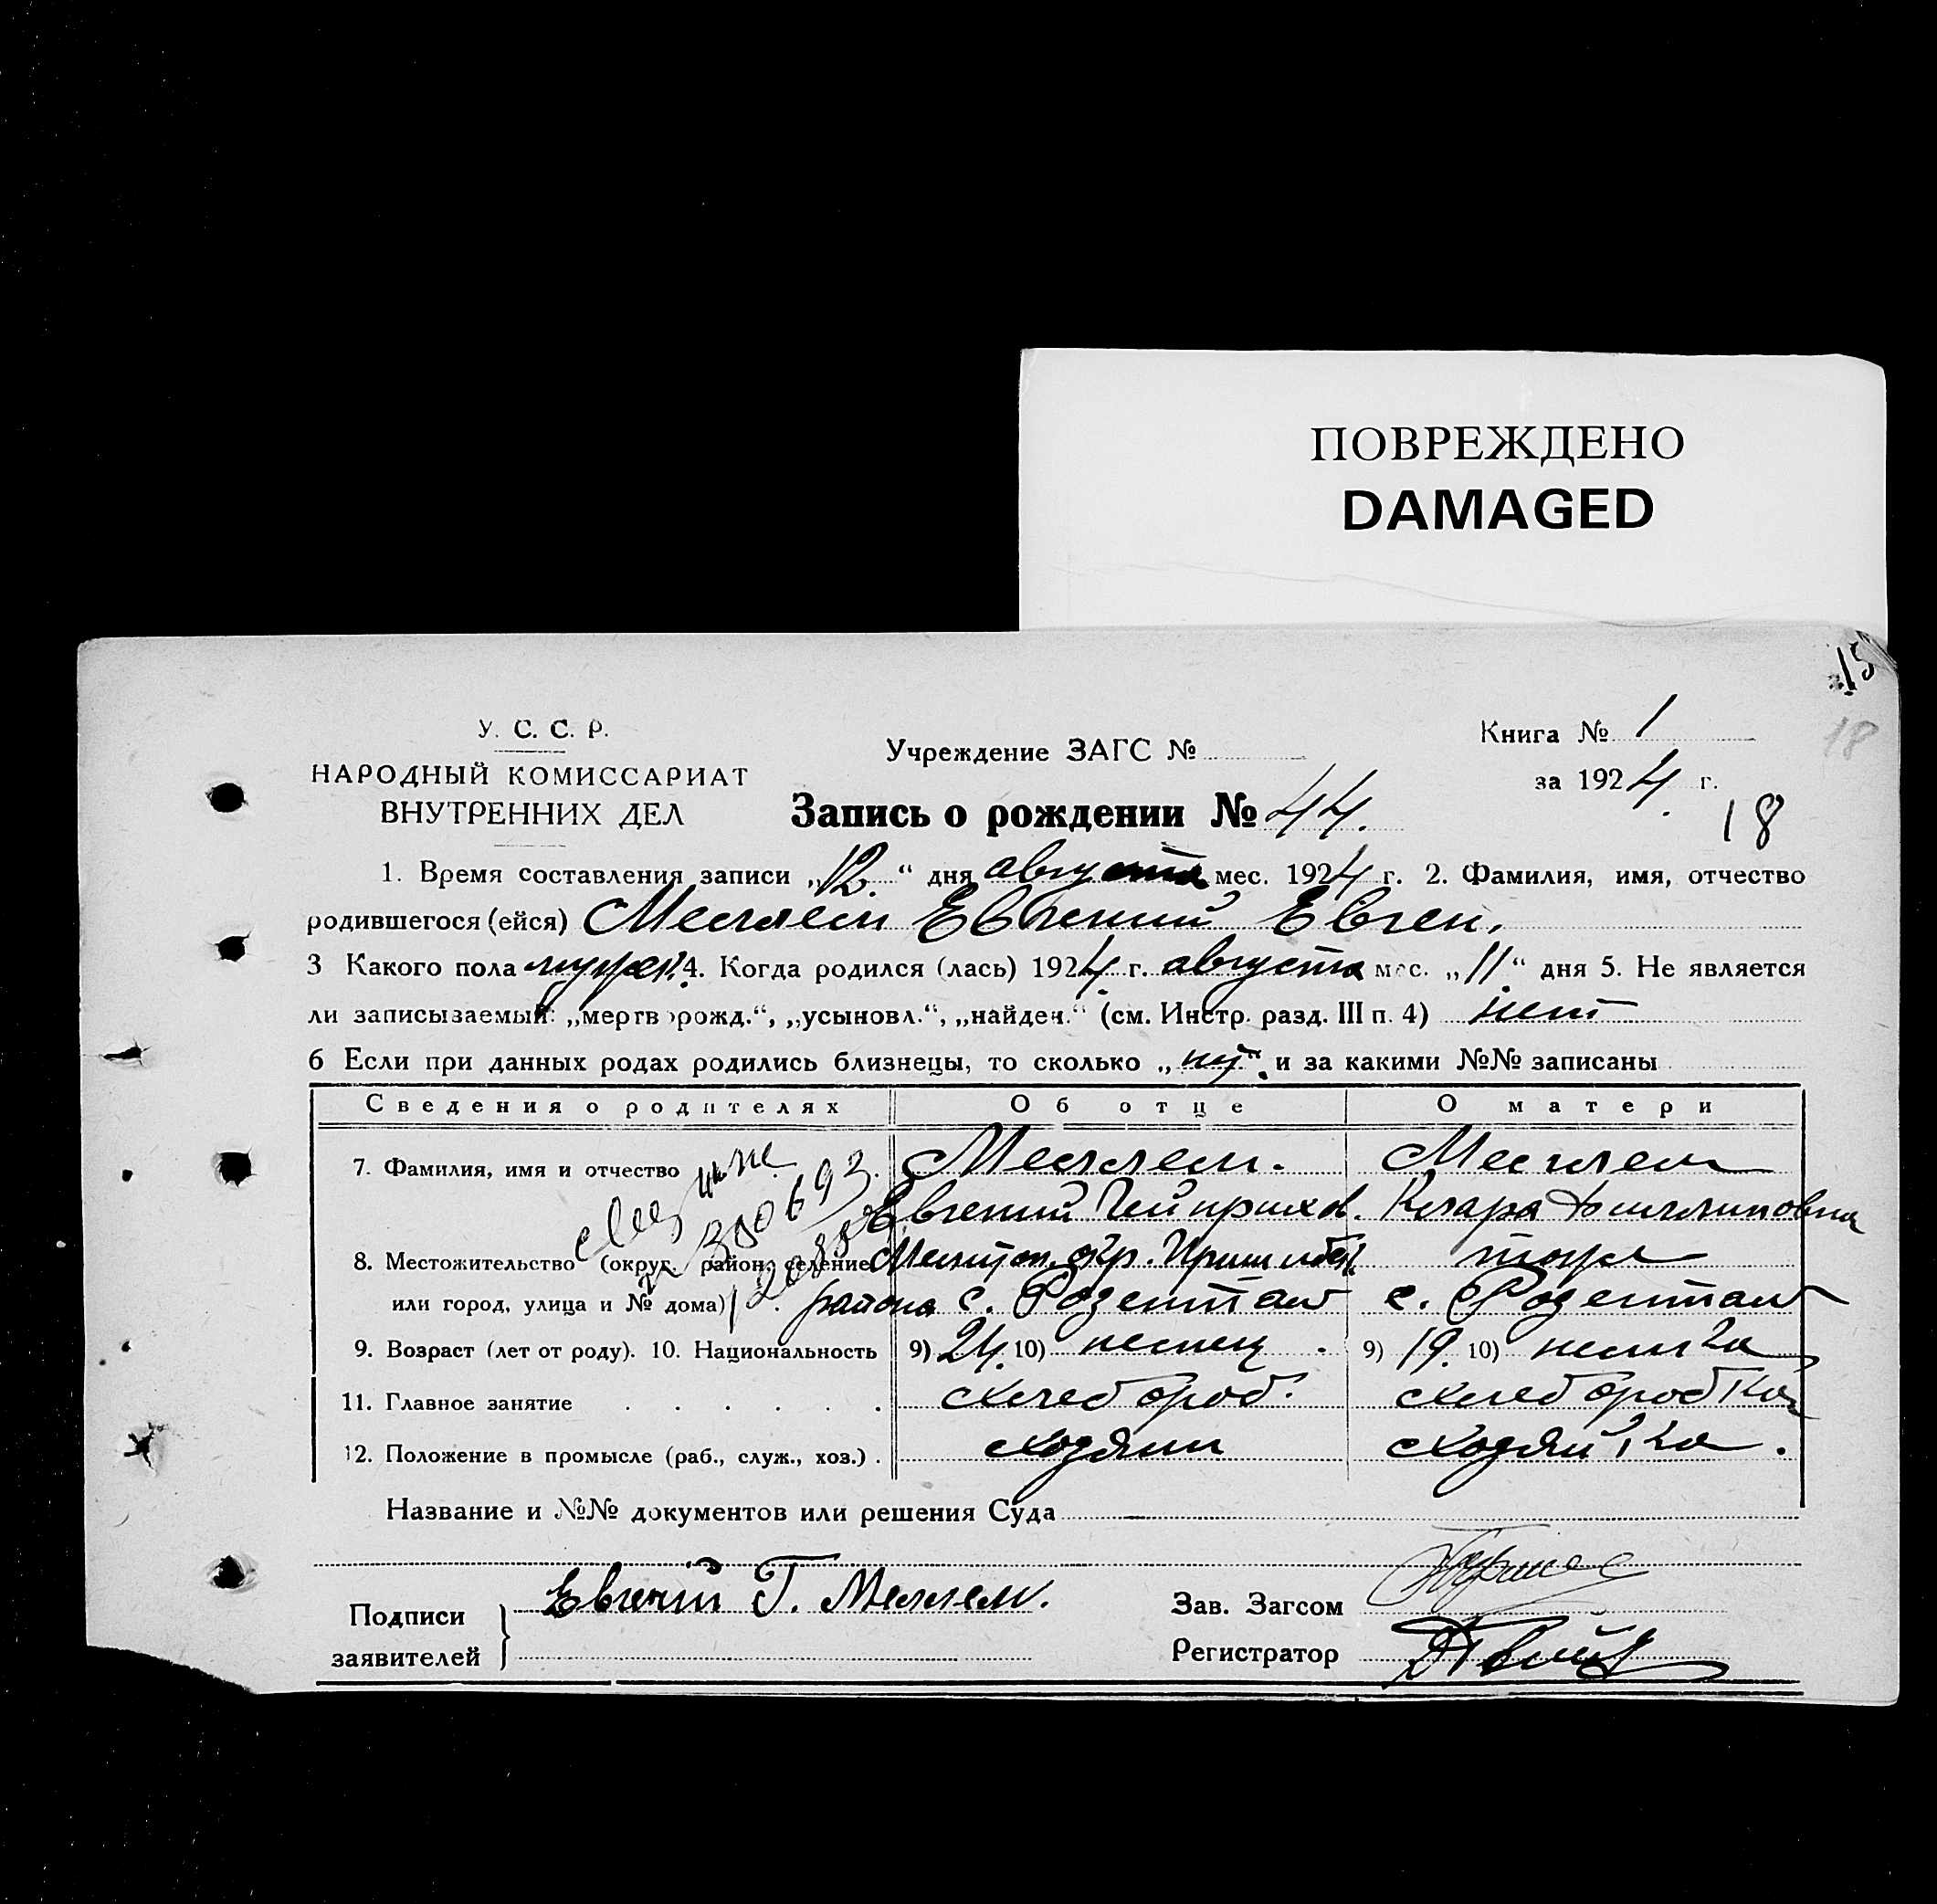 ПОВРЕЖДЕНО
DAMAGED
15
18
У. С. С. Р.
НАРОДНЫЙ КОМИССАРИАТ
ВНУТРЕННИХ ДЕЛ
Учреждение ЗАГС №
Книга № 1
за 1924 г.
18
Запись о рождении № 44.
1. Время составления записи „12.“ дня августа мес. 1924 г. 2. Фамилия, имя, отчество
родившегося (ейся) Меллем Евгений Евген.
3 Какого пола мужск. 4. Когда родился (лась) 1924 г. августа мес. „11“ дня 5. Не является
ли записываемый: „мертворожд.“, „усыновл.“, „найден.“ (см. Инстр. разд. III п. 4) нет
6 Если при данных родах родились близнецы, то сколько „ “ и за какими №№ записаны
Сведения о родителях Об отце О матери
7. Фамилия, имя и отчество Меллем. Меллем
Евгений Гейнрихов. Клара Филлиповна
8. Местожительство (округ, район, селение Мелитоп. окр. Пришибск. тоже
или город, улица и № дома) района с. Розенталь с. Розенталь
9. Возраст (лет от роду). 10. Национальность 9) 24. 10) немец. 9) 19. 10) немка
11. Главное занятие . . . . . . хлебороб. хлеборобка
12. Положение в промысле (раб., служ., хоз.) . хозяин хозяйка.
Название и №№ документов или решения Суда
Подписи
заявителей
Евгений Г. Меллем.
Зав. Загсом
Регистратор